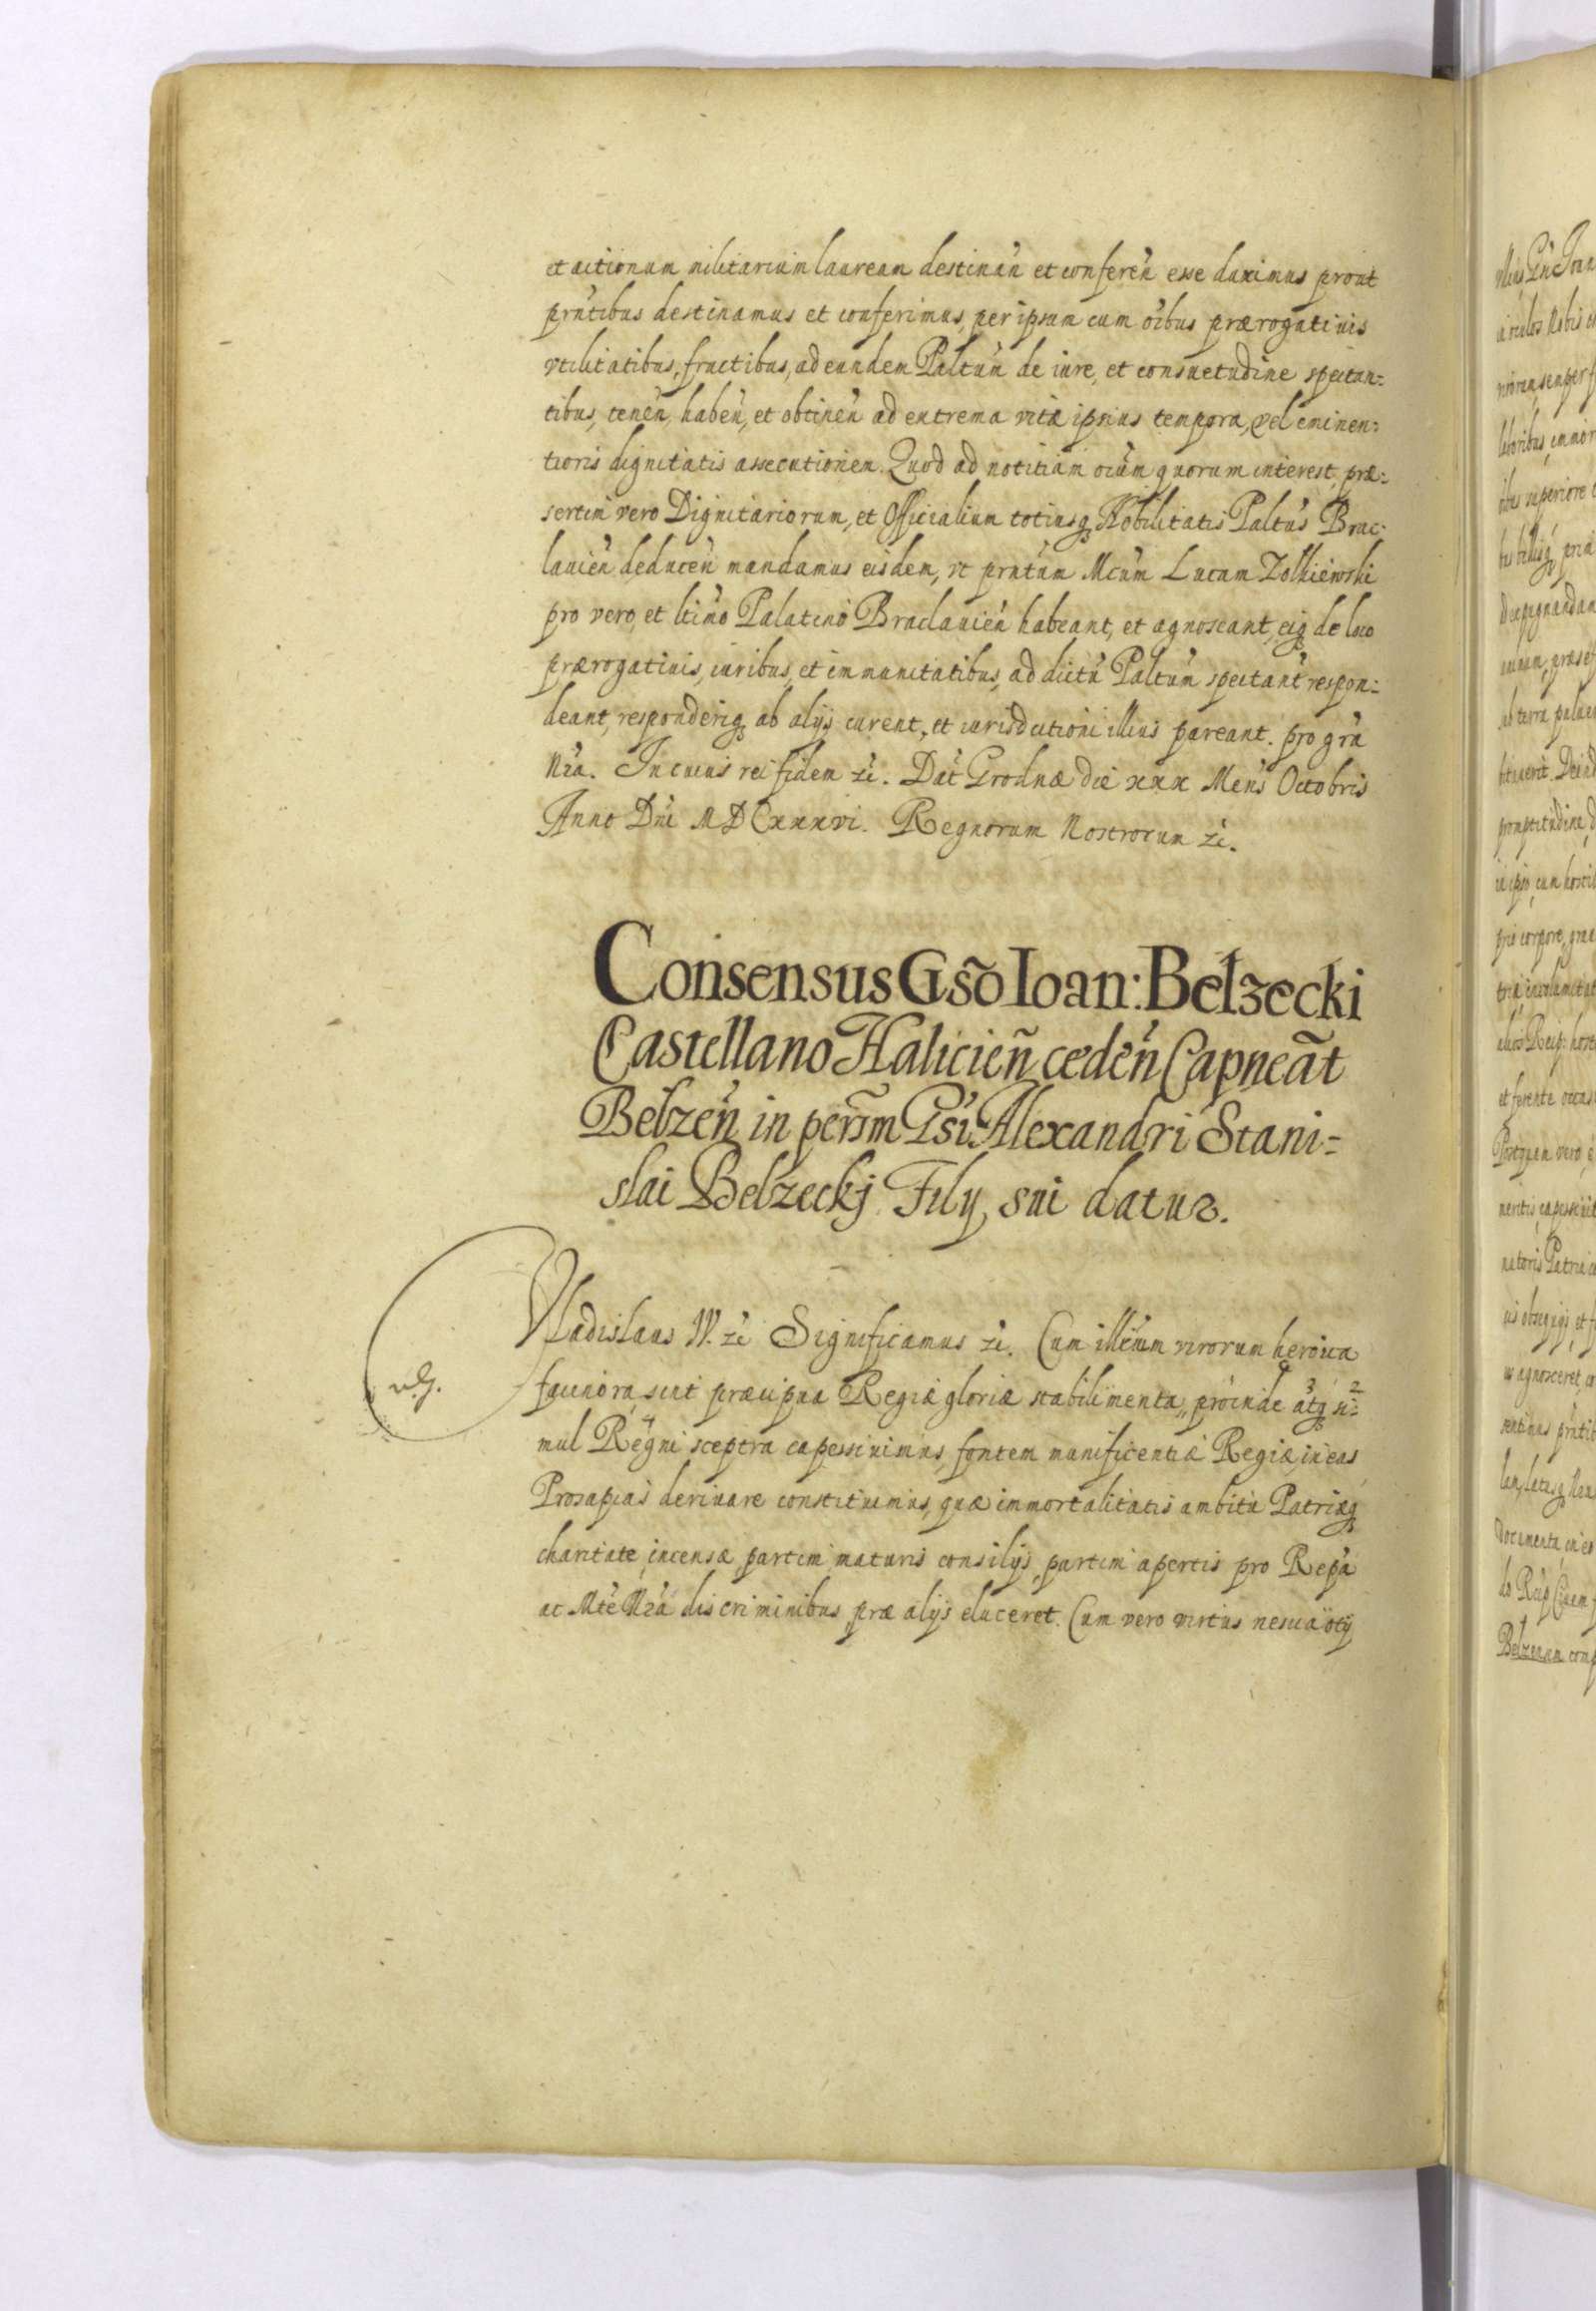 et actionum militarium lauream destinan̄ et conferen̄ esse duximus prout
prn̄tibus destinamus et conferimus, per ipsum cum oībus prærogatiuis
vtilitatibus, fructibus, ad eundem Paltum̄ de iure, et consuetudine spectan=
tibus, tenen̄, haben̄, et obtinen̄ ad extrema vitæ ipsius tempora, vel eminen=
tioris dignitatis assecutionem. Quod ad notitiam oīum quorum interest, præ=
sertim vero Dignitariorum, et Officialium totiusq Nobilitatis Paltus̄ Brac=
lauien̄ deducen̄ mandamus eisdem, vt prn̄tum Mcum̄ Lucam Zolkiewski
pro vero, et ltimō Palatino Braclauien̄ habeant, et agnoscant, eiq de loco
prærogatiuis, iuribus, et immunitatibus, ad dictū Paltum̄ spectan̄t respon=
deant, responderiq ab alijs curent, et iurisdictioni illius pareant. pro grā
Nrā. In cuius rei fidem zē. Dat̄ Grodnæ die xxx Mens̄ Octobris
Anno Dn̄i MDCxxxvi. Regnorum Nostrorum zē.
Consensus Gsõ Ioan: Belzecki
Castellano Halicien̄ ceden̄ Capneãt
Belzen̄ in persm̄ Gsī Alexandri Stani=
slai Belzeckj Filij sui datur.
Vladislaus IV. zē Significamus zē. Cum illrium̄ virorum heroica
facinora, sint præcipua Regiæ gloriæ stabilimenta, proinde 3 atq 2 si=
mul 4 Regni sceptra capessiuimus, fontem munificentiæ Regiæ, in eas
Prosapias deriuare constituimus, quæ immortalitatis ambitu Patriæq
charitate, incensæ, partim maturis consilijs, partim apertis pro Repā
ac Mtē Nrā discriminibus, præ alijs eluceret. Cum vero virtus nescia otij